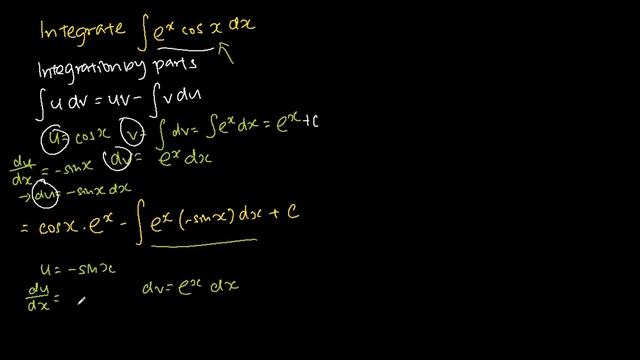 Integrate ∫ eˣ cos x dx
Integration by parts
∫ u dv = uv - ∫ v du
u = cos x v = ∫ dv = ∫ eˣ dx = eˣ + c
du/dx = -sin x dv = eˣ dx
→ du = -sin x dx
= cos x · eˣ - ∫ eˣ (-sin x) dx + c
u = -sin x
du/dx = dv = eˣ dx